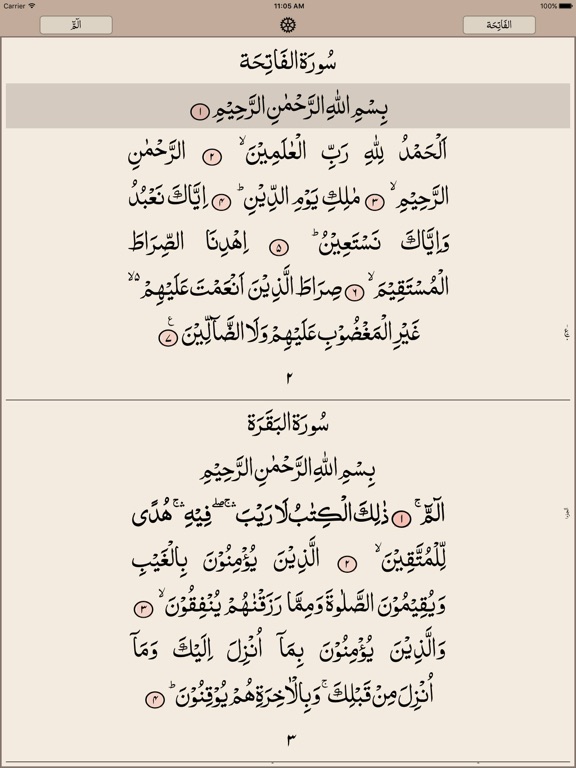 Carrier 11:05 AM 100%
الٓمّٓ الفَاتِحَة
سُورَةُ الفَاتِحَة
بِسْمِ اللهِ الرَّحْمٰنِ الرَّحِيْمِ ١
اَلْحَمْدُ لِلّٰهِ رَبِّ الْعٰلَمِيْنَ ۙ ٢ الرَّحْمٰنِ
الرَّحِيْمِ ۙ ٣ مٰلِكِ يَوْمِ الدِّيْنِ ؕ ۴ اِيَّاكَ نَعْبُدُ
وَاِيَّاكَ نَسْتَعِيْنُ ؕ ۵ اِهْدِنَا الصِّرَاطَ
الْمُسْتَقِيْمَ ۙ ۶ صِرَاطَ الَّذِيْنَ اَنْعَمْتَ عَلَيْهِمْ ۙ۵
غَيْرِ الْمَغْضُوْبِ عَلَيْهِمْ وَلَا الضَّآلِّيْنَ ٧ ع
٢
سُورَةُ البَقَرَة
بِسْمِ اللهِ الرَّحْمٰنِ الرَّحِيْمِ
الٓمّٓ ۚ ١ ذٰلِكَ الْكِتٰبُ لَا رَيْبَ ۛۚ ۖ فِيْهِ ۛۚ هُدًى
لِّلْمُتَّقِيْنَ ۙ ٢ الَّذِيْنَ يُؤْمِنُوْنَ بِالْغَيْبِ
وَيُقِيْمُوْنَ الصَّلٰوةَ وَمِمَّا رَزَقْنٰهُمْ يُنْفِقُوْنَ ۙ ٣
وَالَّذِيْنَ يُؤْمِنُوْنَ بِمَآ اُنْزِلَ اِلَيْكَ وَمَآ
اُنْزِلَ مِنْ قَبْلِكَ ۚ وَبِالْاٰخِرَةِ هُمْ يُوْقِنُوْنَ ؕ ۴
٣